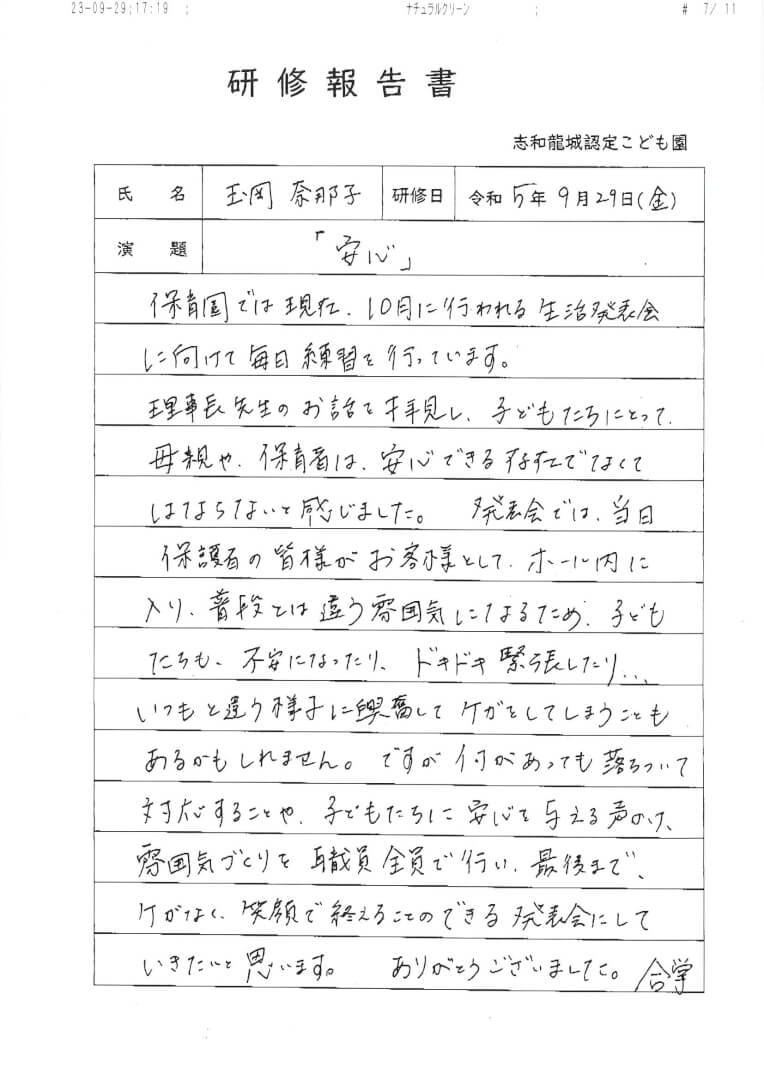 23-09-29;17:19 ; ナチュラルクリーン ; # 7/ 11
研修報告書
志和龍城認定こども園
氏 名 玉岡 奈那子 研修日 令和 5年 9月29日(金)
演 題 「安心」
保育園では現在、10月に行われる生活発表会
に向けて毎日練習を行っています。
理事長先生のお話を拝見し、子どもたちにとって、
母親や、保育者は、安心できる存在でなくて
はならないと感じました。 発表会では、当日
保護者の皆様がお客様として、ホール内に
入り、普段とは違う雰囲気になるため、子ども
たちも、不安になったり、ドキドキ緊張したり...、
いつもと違う様子に興奮してケガをしてしまうことも
あるかもしれません。ですが何があっても落ちついて
対応することや、子どもたちに安心を与える声かけ、
雰囲気づくりを職員全員で行い、最後まで、
ケガなく、笑顔で終えることのできる発表会にして
いきたいと思います。 ありがとうございました。 合掌